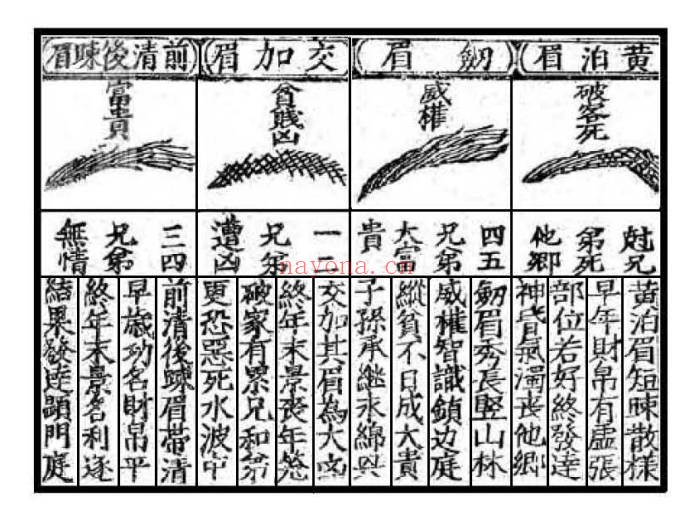 黄泊眉
破客死
尅兄
弟死
他鄉
黄泊眉短疎散樣
早年財帛有虛張
部位若好終發達
神昏氣濁喪他鄉
劔眉
威權
四五
兄弟
大富
貴
劔眉秀長竪山林
威權智識鎮边庭
縱貧不日成大貴
子孫承継永綿
交加眉
貧賤凶
一
兄弟
遭凶
交加其眉為大凶
終年末景喪年
破家有累兄和弟
更恐惡死水波中
前清後疎眉
富貴
三四
兄弟
無情
前清後疎眉帶清
早歳功名財帛平
終年末景名利遂
結果發達顕門庭
navona.cn